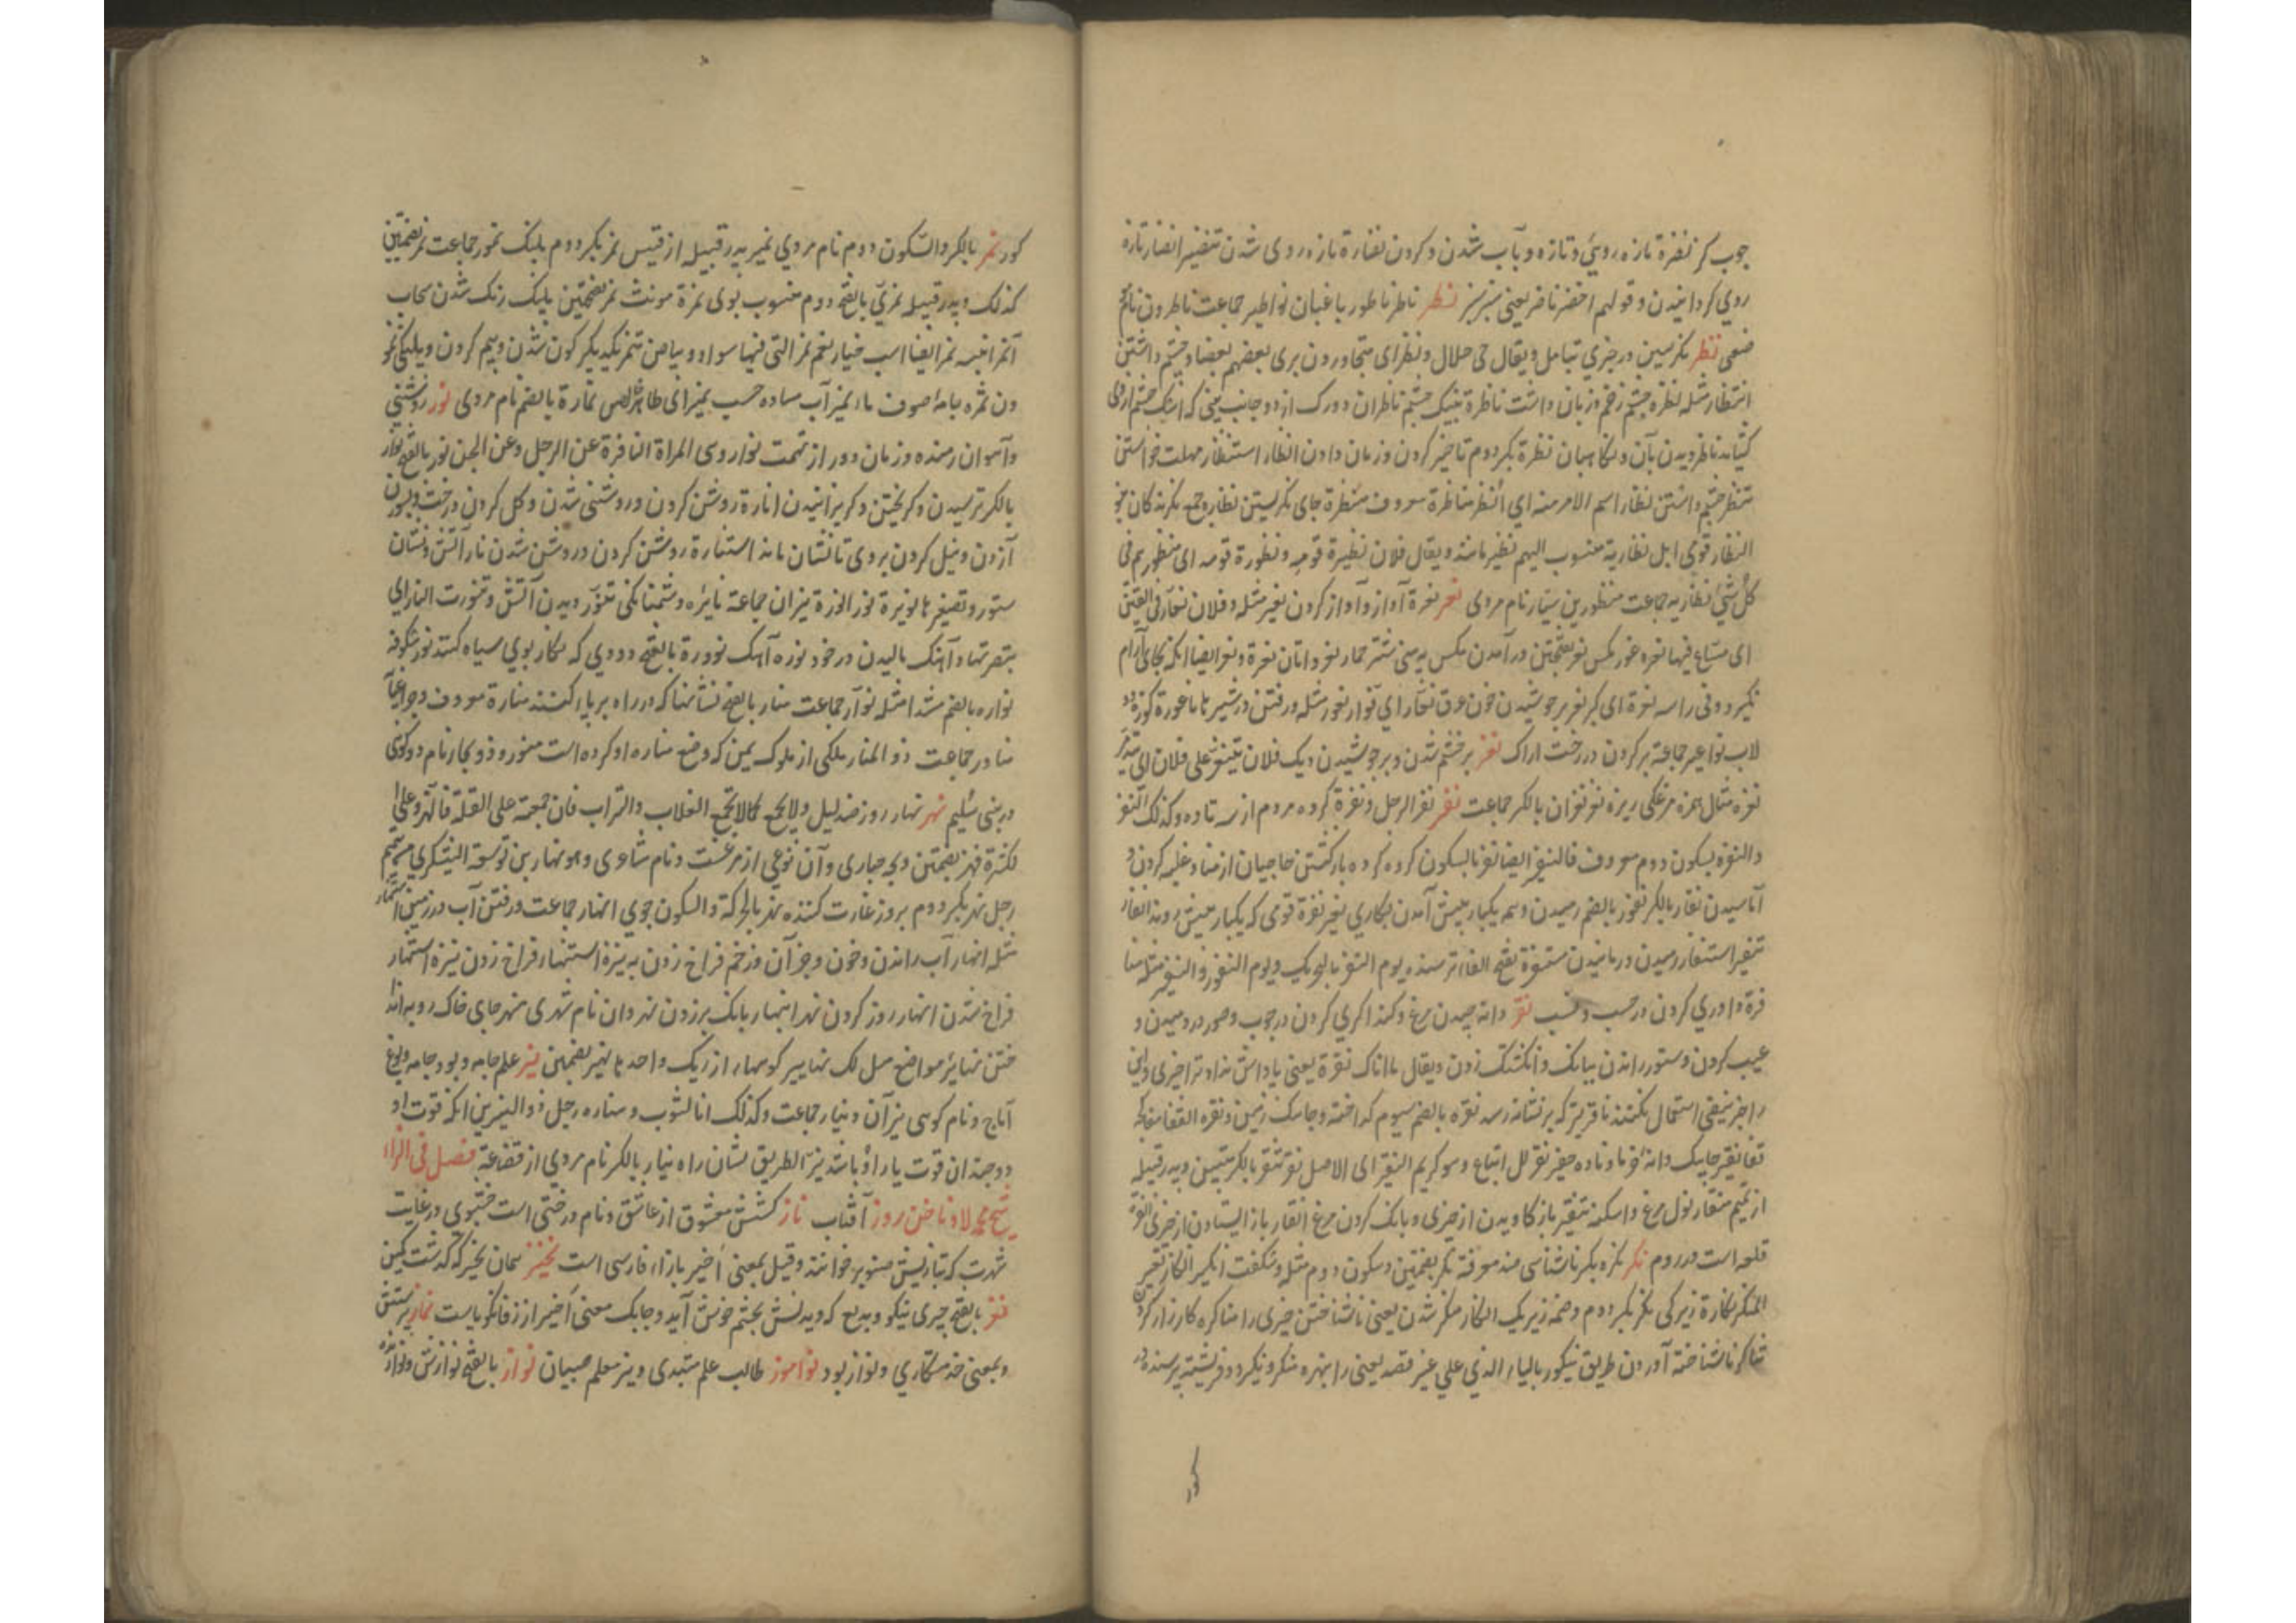 چوب کز نضرة تازه روئی و تازه و با آب شدن و کردن نضارة تازه روی شدن تنضیر انضار تازه
روی گردانیدن و قولهم اخضر ناضر یعنی سبز سبز نطر ناطر ناطور باغبان نواطیر جماعت ناطرون نام
ضعی نظر نگرستن در چیزی بتامل و یقال حی حلال و نظر ای متجاورون یری بعضهم بعضا و چشم داشتن
انتظار مثله نظرة چشم زخم و زمان داشت ناظرة بینک چشم ناظران دو رگ از دو جانب بینی که اشک چشم ازو
کشاید ناظر دیدن بآن و نگاهبان نظرة بکسر دوم تاخیر کردن و زمان دادن انظار استنظار مهلت خواستن
تنظر چشم داشتن نظار اسم الامر منه ای انتظر مناظرة معروف منظرة جای نگریستن نظار و جمع نگرندگان
النظار قومی اهل نظاریة منسوب الیهم نظیر مانند و یقال فلان نظیرة قومه و نظورة قومه ای منظور هم فی
کل شئ نظاریه جماعت منظور بن سیار نام مردی نعر نعرة آواز و آواز کردن نعیر مثله و فلان نعار فی الفتن
ای سعاع فیها نعره خر مکس نعر بفتحتین در آمدن مکس به بینی شتر حمار نعر و اتان نعرة و نعر ایضا آنکه بجائی آرام
نگیرد و فی راسه نعرة ای کبر نعر بر جوشیدن خون عرق نعار ای نوار نعور مثله و رفتن در شهرها ناعورة کوزه
لاب نواعیر جماعة بر کردن درخت اراک نغر بر خشم شدن و بر جوشیدن دیک فلان یتنغر علی فلان ای یتذمر
نغره مثال همزه مرغکی ریزه نغر نغران بالکسر جماعت نفر نفر الرجل و نفرة گروه مردم از سه تا ده و کذلک النفر
والنفرة بسکون دوم معروف فالنفیر ایضا نفر بالسکون گروه گروه بازگشتن حاجیان از منا و غلبه کردن و
آماسیدن نفار بالکسر نفور بالضم رمیدن و همه یکبار پیش آمدن بکاری نفیر نفرة قومی که یکبار پیش روند انفار
تنفیر استنفار رمیدن و رمانیدن مستنفرة بفتح الفا ترسنده یوم النفر بالتحریک و یوم النفور و النفیر مثله منا
فرة داوری کردن در حسب و نسب نقر دانه چیدن مرغ و کنداگری کردن در چوب و صور در دمیدن و
عیب کردن و ستور راندن ببانک و انگشتک زدن و یقال ما اناک نقرة یعنی پاداش نداد ترا چیزی و این
را جز بنفی استعمال نکنند ناقر تیر که بر نشانه رسد نقرة بالضم سیوم گداخته و جامک زمین و نقره القفا مغاکچه
قفا نقیر چاهک دانه خرما و ناوه حقیر نقر لل اتباع و هو کریم النقیر ای الاصل نقر تنقر بالکسر بنیسن و پدر قبیله
از تمیم منقار نول مرغ و اسکنه تنقیر باز کاویدن از چیزی و بانک کردن مرغ انقار باز ایستادن از چیزی انقرة
قلعه است در روم نکر نکره بکسر ناشناسی ضد معرفة نکر بضمتین و سکون دوم مثله و شکفت انکیر انکار تغییر
المنکر نکارة زیرکی نکر بکسر دوم و ضمه زیرک انکار منکر شدن یعنی ناشناختن چیزی را مناکره کارزار کردن
تناکر ناشناخته آوردن طریق ینکور بالیاء الذی علی غیر قصد یعنی را بنهره منکر و نکیر دو فریشته پرسنده در
کور
کور نمر بالکسر والسکون دوم نام مردی نمیر پدر قبیله از قیس نمر بکسر دوم پلنگ نمور جماعت نمر بضمتین
کذلک و پدر قبیله نمری بالفتح دوم منسوب بوی نمرة مونث نمر بفتحتین پلنگ رنگ شدن سحاب
انمر ابیه نمر ایضا اسب خیار نعم نمر التی فیها سواد و بیاض تنمر یکدیگر کون شدن و بیم کردن و پلنگی نمو
دن نمره جامه صوف ماء نمیر آب ساده حسب نمیر ای طاهر خالص نمارة بالضم نام مردی نور روشنی
و آهوان رمنده و زنان دور از تهمت نوار وهی المراة النافرة عن الرجل و عن الجن نور بالفتح نوار
بالکسر ترسیدن و گریختن و گریزانیدن انارة روشن کردن و روشنی شدن و گل کردن درخت و بیرون
آزدن و نیل کردن بر وی تا نشان ماند استنارة روشن کردن و روشن شدن نار آتش و نشان
ستور و تصغیرها نویرة نور انورة نیران جماعة نایره دشمنانگی تنور دیدن آتش و تنورت النار ای
بتصرتها و آهک مالیدن در خود نوره آهک نوورة بالفتح دودی که نگار بوی سیاه کنند نور شکوفه
نواره بالضم مشددا مثله نوار جماعت منار بالفتح نشانها که در راه بر پا کنند منارة معروف و جراغپا
مناور جماعت ذو المنار ملکی از ملوک یمن که وضع مناره او کرده است منور و ذو بحار نام دو کوی
در بنی سلیم نهر نهار روز ضد لیل ولایجمع کمالایجمع العذاب والتراب فان جمعته علی القلة فانهر و علی
لکثرة فنهر بضمتین و بچه حباری و آن نوعی از مرغست و نام شاعری و هو نهار بن توسعة الیشکری من تمیم
رجل نهر بکسر دوم بروز غارت کننده نهر بالحرکة والسکون جوی انهار جماعت و رفتن آب در زمین استنهار
مثله انهار آب راندن و خون و جز آن و زخم فراخ زدن به نیزة استنهار فراخ زدن نیزه استنهار
فراخ شدن انهار روز کردن نهر انتهار بانک بر زدن نهروان نام شهری منهر جای خاک روبه انداختن
ختن نهایر مواضع مهلک نهابیر کوهها از ریگ واحدها نهبر بضمتین نیر علم جامه و پود جامه و یوغ
آماج و نام کوهی نیر آن و نیار جماعت و کذلک انا لثوب و مناره رجل ذو النیرین آنکه قوت او
دو چندان قوت یار او باشد نیر الطریق نشان راه نیار بالکسر نام مردی از قضاعة فصل فی الزاء
شیخ محمد لاد ناخن روز آفتاب ناز کشش معشوق از عاشق و نام درختی است خشبوی در غایت
شهرت که بتازیش صنوبر خوانند و قیل بمعنی اخیر بازاء فارسی است نخیز همان نخیز که گذشت کمین
نغز بالفتح چیزی نیکو و بدیع که دیدنش بچشم خوش آید و چابک معنی اخیر از زفانگویاست نماز پرستش
و بمعنی خدمتکاری و نواز بود نوآموز طالب علم مبتدی و نیز معلم صبیان نواز بالفتح نوازش و نوازنده